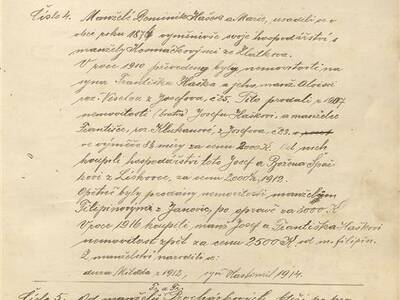 Číslo 4. Manželé Dominik Hašek a Marie, usadili se v
obci roku 1874 vyměnivše svoje hospodářství s
manžely Homáčkovými ze Zlatkova.
V roce 1910 převedeny byly nemovitosti na
syna Františka Haška a jeho manž. Aloisii
roz. Veselou z Josefova, č. 25. Tito prodali r. 1907
nemovitosti (bratu) Josefu Haškovi a manželce
Františce, roz. Kluchanové, z Josefova, č. 23.
ve výměře 3 1/2 míry za cenu 2000 K. Od nich
koupili hospodářství toto Josef a Božena Špač
kovi z Liškovec, za cenu 2000 K, 1912.
Opětně byly prodány nemovitosti manželům
Filipinovým z Janovic, po opravě za 3000 K.
V roce 1916 koupili, manž. Josef a Františka Haškovi
nemovitost zpět za cenu 2500 K. od m. Filipin.
Z manželství narodilo se:
dcera Milada r. 1912, syn Vlastimil 1914.
Číslo 5. Od manželů